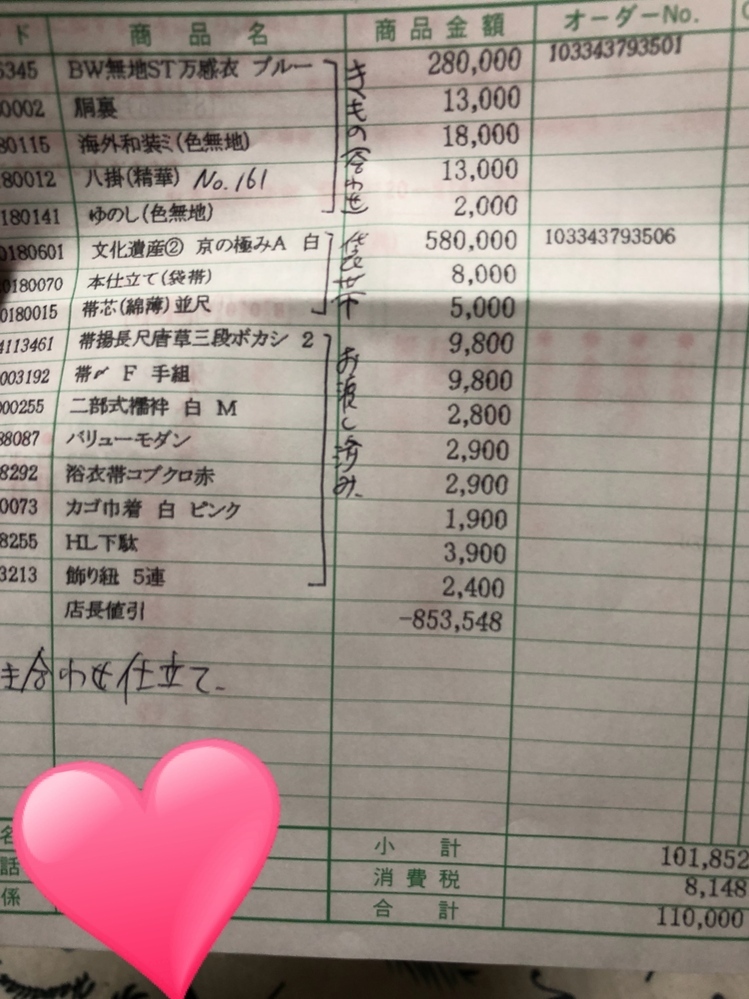 ド 商品名 商品金額 オーダーNo.
6345 BW無地ST万感衣 ブルー 280,000 103343793501
0002 胴裏 13,000
80115 海外和装ミ(色無地) 18,000
80012 八掛(精華) No.161 13,000
180141 ゆのし(色無地) 2,000
0180601 文化遺産② 京の極みA 白 580,000 103343793506
0180070 本仕立て(袋帯) 8,000
0180015 帯芯(綿薄)並尺 5,000
4113461 帯揚長尺唐草三段ボカシ 2 9,800
003192 帯〆 F 手組 9,800
000255 二部式襦袢 白 M 2,800
88087 バリューモダン 2,900
8292 浴衣帯コプクロ赤 2,900
0073 カゴ巾着 白 ピンク 1,900
8255 HL下駄 3,900
3213 飾り紐 5連 2,400
店長値引 -853,548
きもの
合わせ
お渡し済み
合わせ仕立て
名
話
係
小計 101,852
消費税 8,148
合計 110,000